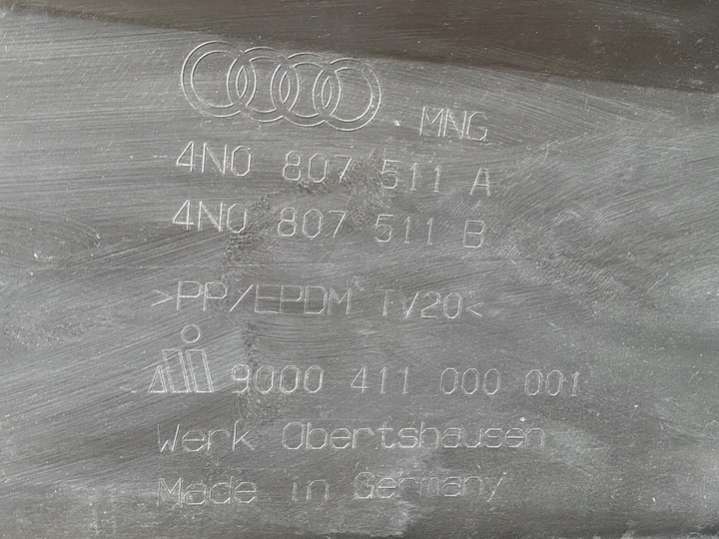 MNG
4N0 807 511 A
4N0 807 511 B
>PP/EPDM TV20<
9000 411 000 001
Werk Obertshausen
Made in Germany